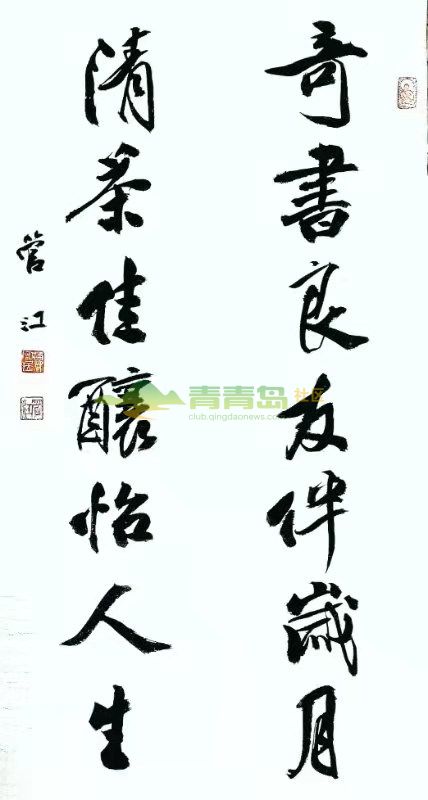 奇書良友伴歲月
清茶佳釀怡人生
管江
青青岛社区
club.qingdaonews.com